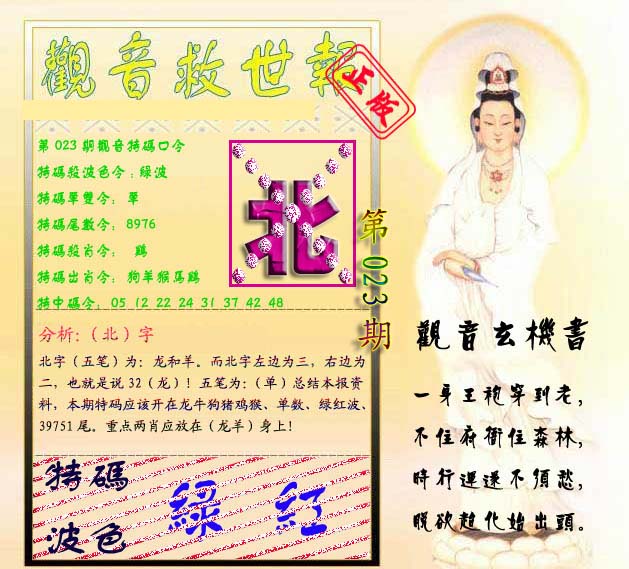 觀音救世報
正版
第023期觀音特碼口令
特碼殺波色令:綠波
特碼單雙令: 單
特碼尾數令: 8976
特碼殺肖令: 鷄
特碼出肖令: 狗羊猴馬鷄
特中碼令: 05 12 22 24 31 37 42 48
北
第023期
分析:（北）字
北字（五笔）为：龙和羊。而北字左边为三，右边为
二，也就是说 32（龙）！五笔为:（单）总结本报资
料，本期特码应该开在龙牛狗猪鸡猴、单数、绿红波、
39751 尾。重点两肖应放在（龙羊）身上！
特碼
波色
綠 紅
觀音玄機書
一身王袍穿到老，
不住府衙住森林，
時行運遂不須愁，
脫欲超化始出頭。